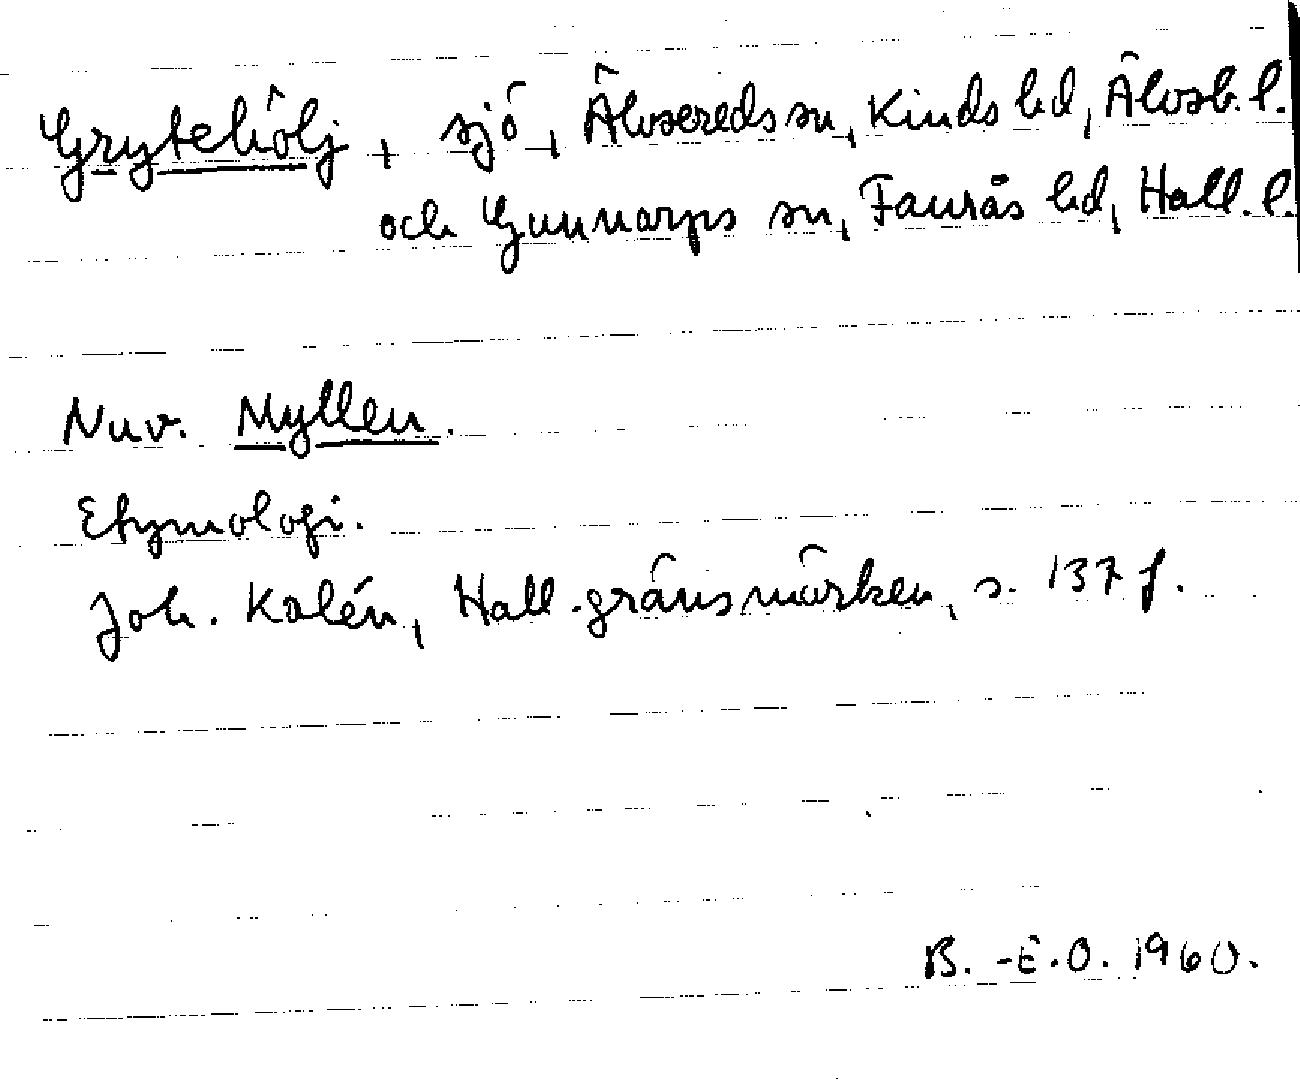 Grytehölj, sjö, Älvsereds sn, Kinds hd, Älvsb. l.
och Gunnarps sn, Faurås hd, Hall. l.
Nuv. Myllen.
Etymologi.
Joh. Kalén, Hall. gränsmärken, s. 137 f.
B.-E.O. 1960.